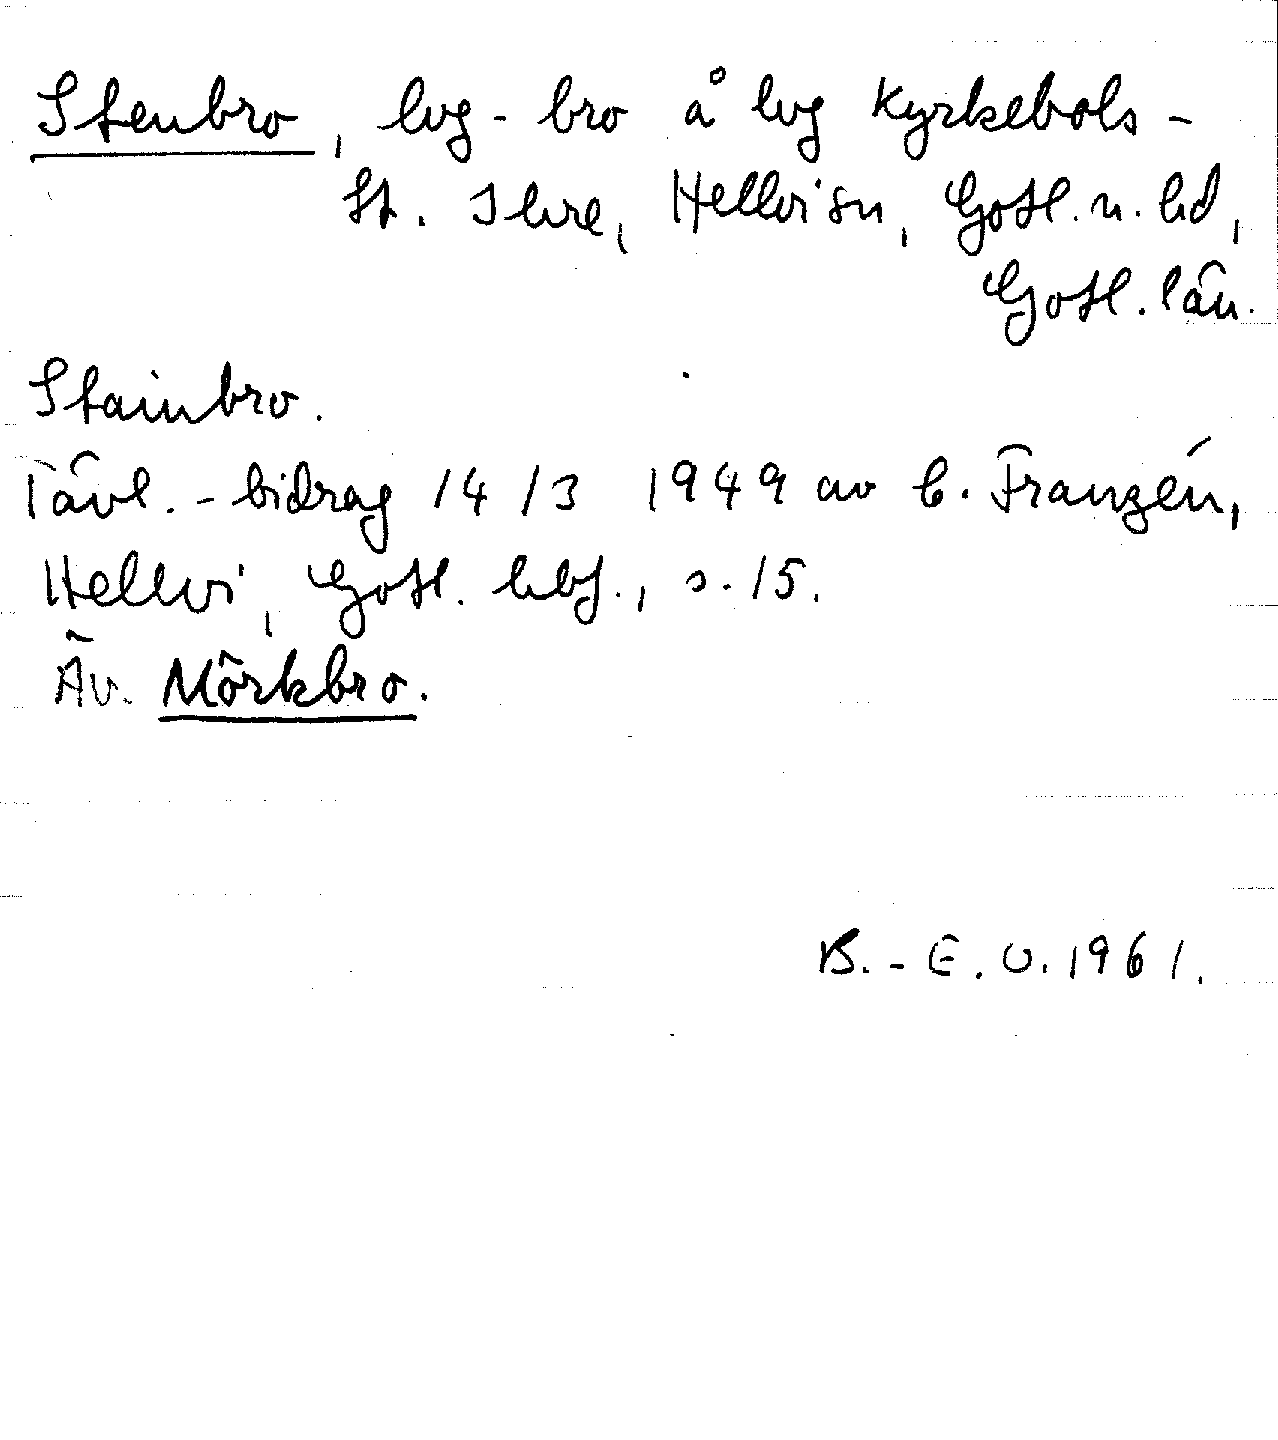 Stenbro, lvg-bro å lvg Kyrkebols-
St. Ihre, Hellvi sn, Gotl. n. hd,
Gotl. län.
Stainbro.
Tävl.-bidrag 14/3 1949 av C. Franzén,
Hellvi, Gotl. hbf., s. 15.
Äv. Mörkbro.
B.-E. O. 1961.